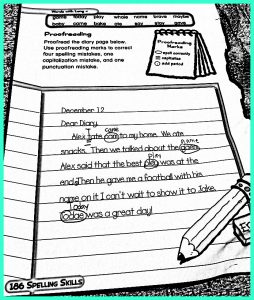 Words with long a
game today play whole name brave maybe
baby came bake ate say stay gave
Proofreading
Proofread the diary page below.
Use proofreading marks to correct
four spelling mistakes, one
capitalization mistake, and one
punctuation mistake.
Proofreading
Marks
spell correctly
capitalize
add period
December 12
Dear Diary,
came
Alex I ate to my home. We ate
game
snacks. Then we talked about the
play
Alex said that the best was at the
end. Then he gave me a football with his
name on it I can't wait to show it to Jake.
Today
was a great day!
186 SPELLING SKILLS